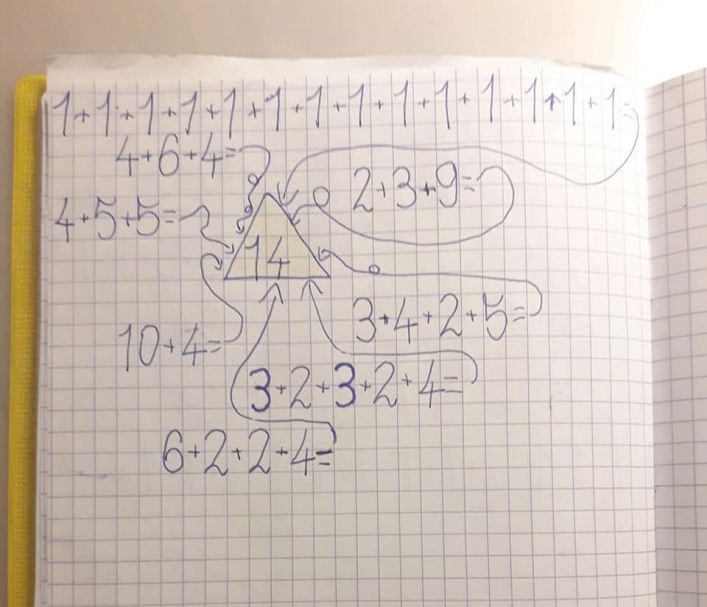 1+1+1+1+1+1+1+1+1+1+1+1+1+1=
4+6+4=
2+3+9=
4+5+5=
14
3+4+2+5=
10+4=
3+2+3+2+4=
6+2+2+4=